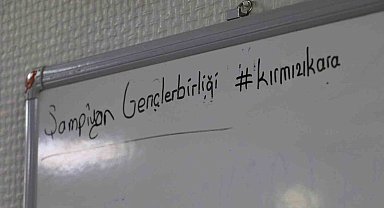 Şampiyon Gençlerbirliği #kırmızıkara